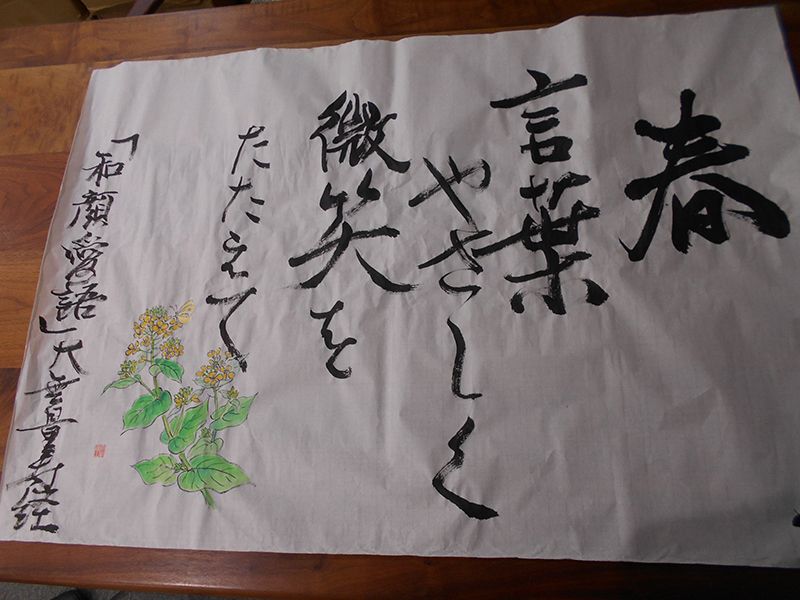 春
言葉
やさしく
微笑を
たたえて
「和顔愛語」大無量寿経